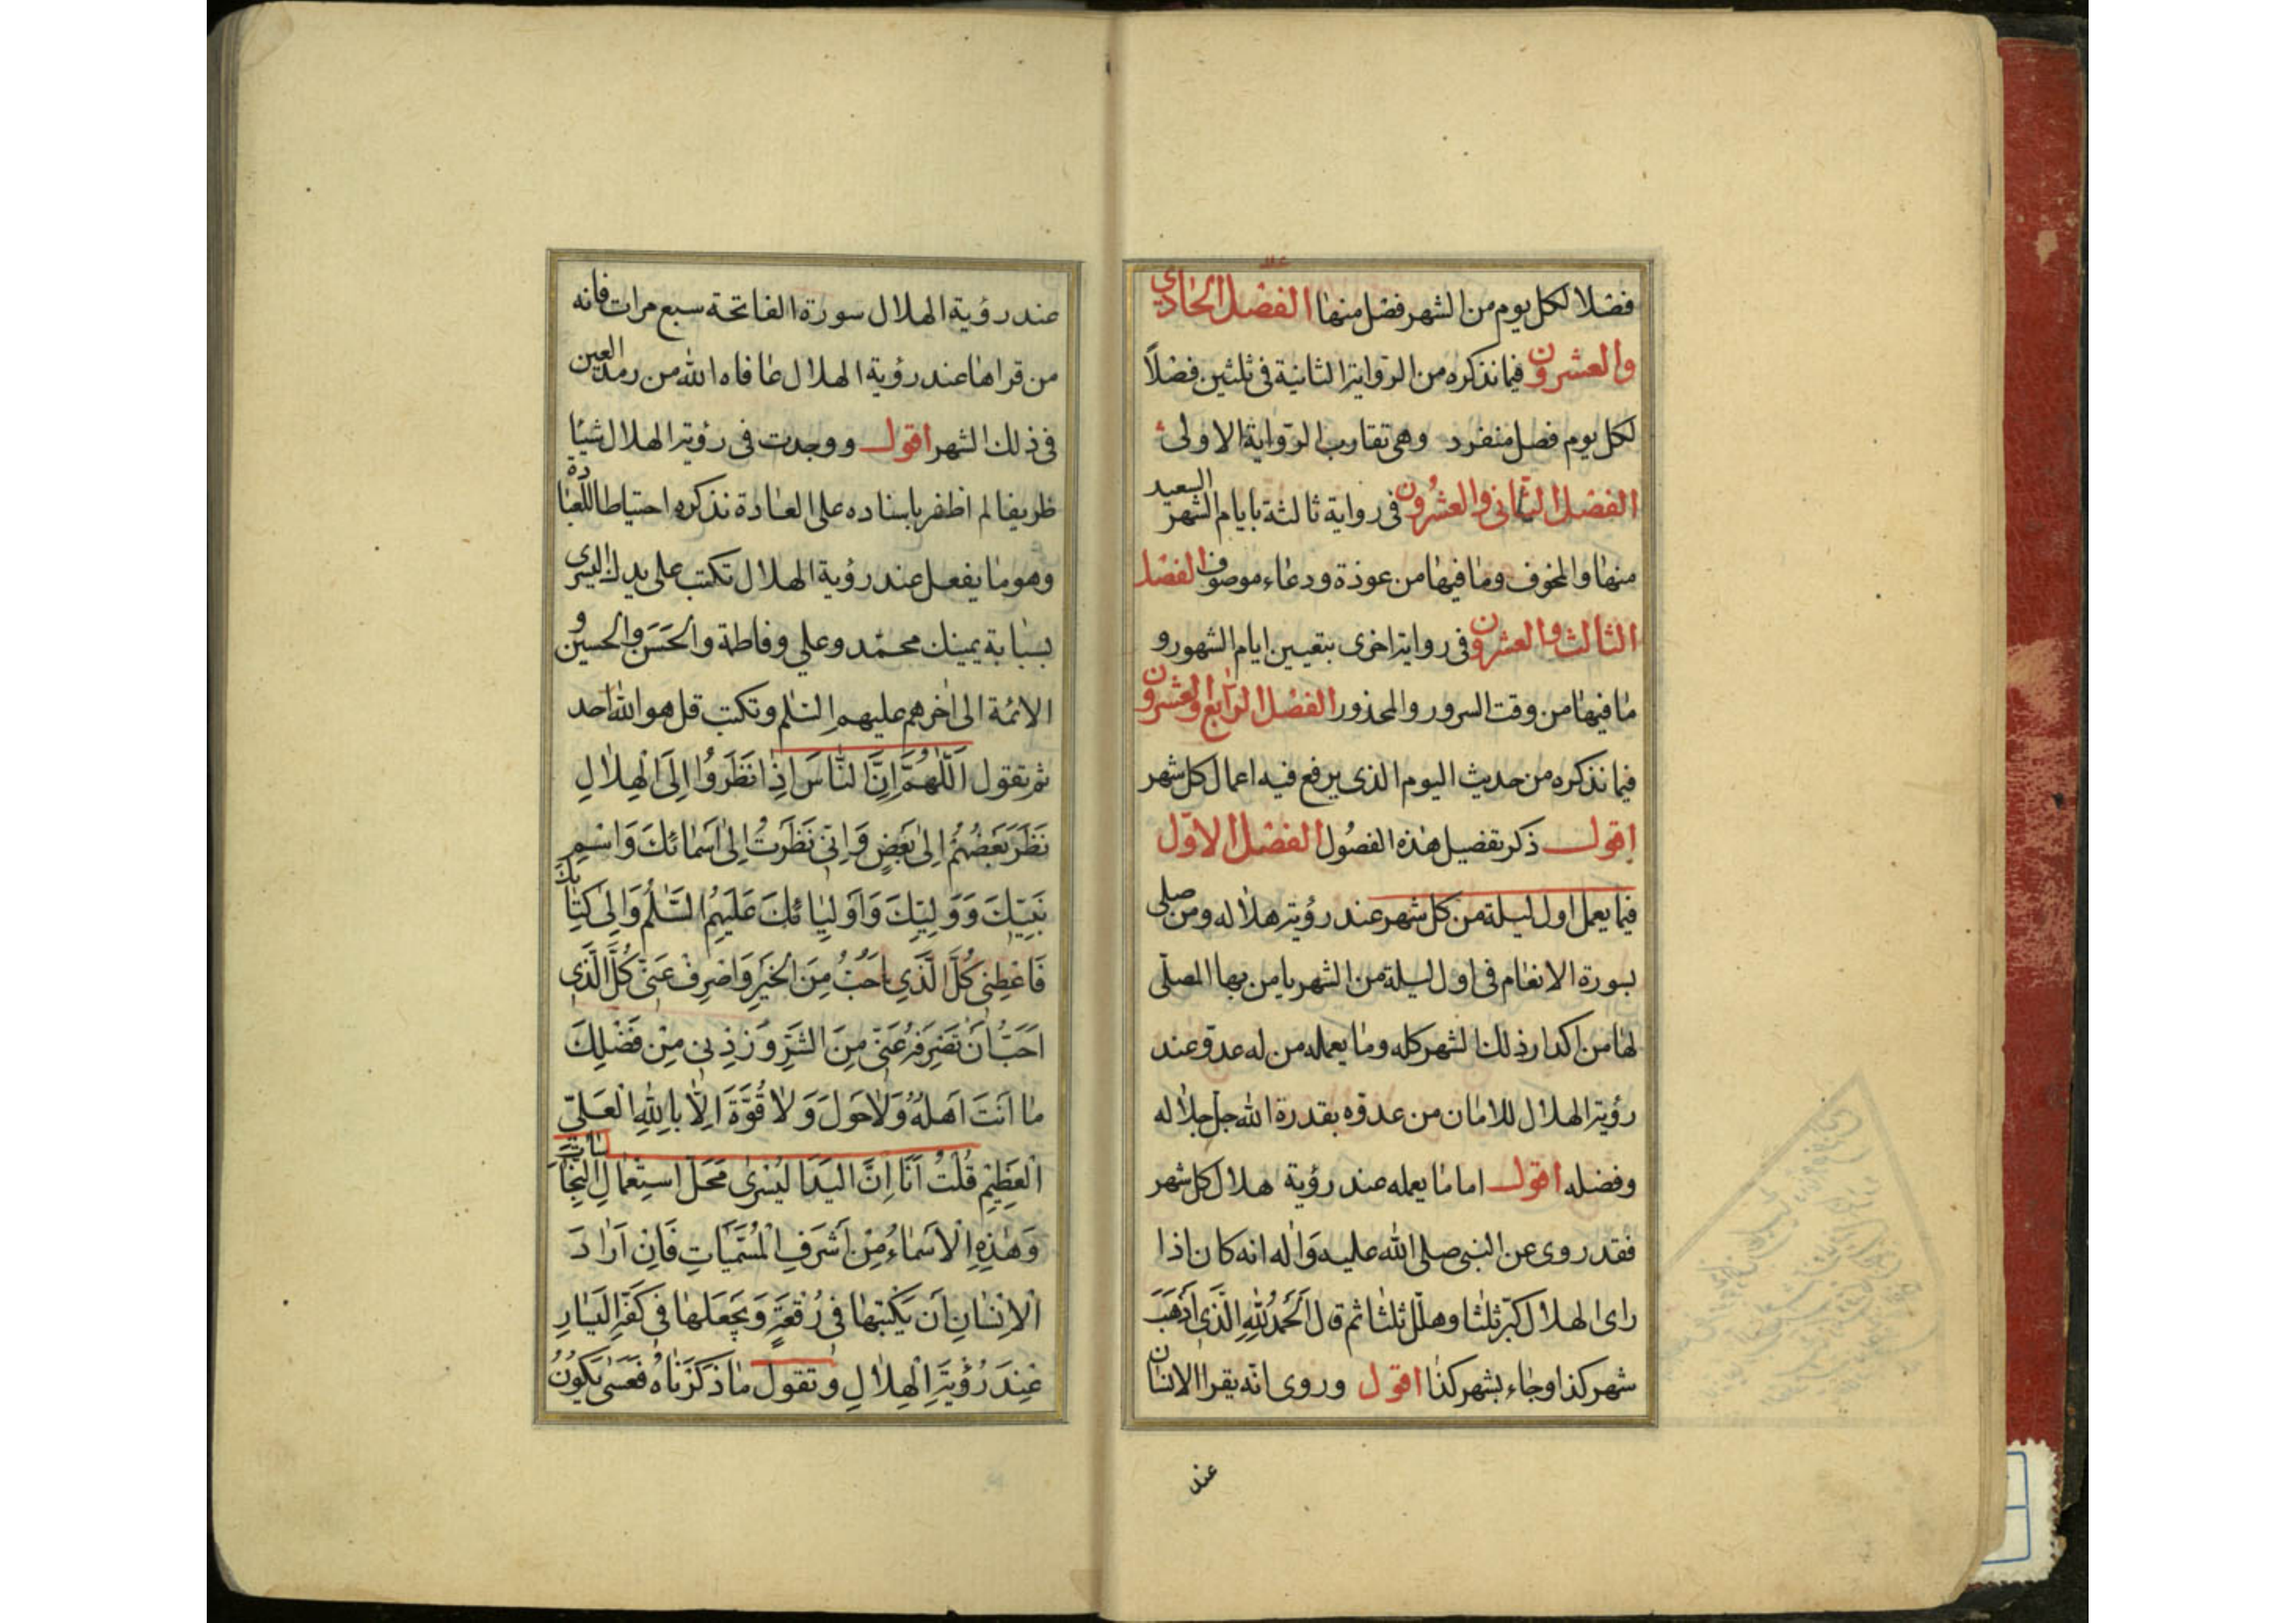 فضلا لكل يوم من الشهر فضل منها الفضل الحادي
والعشرون فيما نذكره من الرواية الثانية في ثلثين فضلاً
لكل يوم فصل منفرد وهي تقارب الرواية الاولى
الفضل الثاني والعشرون في رواية ثالثة بايام الشهر السعيد
منها والمخوف وما فيها من عوذة ودعاء موصوف الفضل
الثالث والعشرون في رواية اخرى بتعيين ايام الشهور و
ما فيها من وقت السرور والمحذور الفضل الرابع والعشرون
فيما نذكره من حديث اليوم الذي يرفع فيه اعمال كل شهر
اقول ذكر تفضيل هذه الفصول الفضل الاول
فيما يعمل اول ليلة من كل شهر عند رؤية هلاله ومن صلى
بسورة الانعام في اول ليلة من الشهر يامن بها المصلّي
لها من اكدار ذلك الشهر كله وما يعمله من له عدوّ عند
رؤية الهلال للامان من عدوّه بقدرة الله جل جلاله
وفضله اقول اما ما يعمله عند رؤية هلال كل شهر
فقد روى عن النبي صلى الله عليه واله انه كان اذا
راى الهلال كبّر ثلثا وهلّل ثلثا ثم قال اَلحَمدُ لِلّهِ الَّذي اَذهَبَ
شهر كذا وجاء بشهر كذا اقول وروى انّه يقرا الانسان
عند
عند رؤية الهلال سورة الفاتحة سبع مرات فانه
من قراها عند رؤية الهلال عافاه الله من رمد العين
في ذلك الشهر اقول ووجدت في رؤية الهلال شيئا
ظريفا لم اظفر باسناده على العادة نذكره احتياطا للعبادة
وهو ما يفعل عند رؤية الهلال تكتب على يدك اليسرى
بسبابة يمينك محمّد وعلي وفاطمة والحَسَن والحسين و
الائمة الى اخرهم عليهم السلم وتكتب قل هو الله احد
ثم تقول اَللّهُمَّ اِنَّ النّاسَ اِذا نَظَرُوا اِلَى الْهِلالِ
نَظَرَ بَعضُهُمْ اِلى بَعْضٍ وَاِنّى نَظَرْتُ اِلى اَسْمائِكَ وَاسْمِ
نَبِيِّكَ وَوَلِيِّكَ وَاَوْلِيائِكَ عَلَيْهِمُ السَّلمُ وَاِلى كِتابِكَ
فَاَعْطِني كُلَّ الَّذي اُحِبُّ مِنَ الْخَيْرِ وَاصْرِفْ عَنّى كُلَّ الَّذي
اُحِبُّ اَنْ تَصْرِفَهُ عَنّى مِنَ الشَّرِّ وَزِدْني مِنْ فَضْلِكَ
ما اَنْتَ اَهْلُهُ وَلا حَوْلَ وَلا قُوَّةَ اِلاّ بِاللّهِ الْعَلِيّ
الْعَظيمِ قُلْتُ اَنَا اِنَّ الْيَدَ اليُسْرى مَحَلُّ اسْتِعْمالِ النِّجاسات
وَهذِهِ الْاَسْماءُ مِنْ اَشْرَفِ الْمُسَمَّياتِ فَاِنْ اَرادَ
الْاِنْسانِ اَن يَكْتُبَها في رُقْعَةٍ وَيَجْعَلَها في كَفِّهِ اليَسارِ
عِنْدَ رُؤْيَةِ الْهِلالِ وَتَقُولَ ما ذَكَرْناهُ فَعَسى يَكُونُ